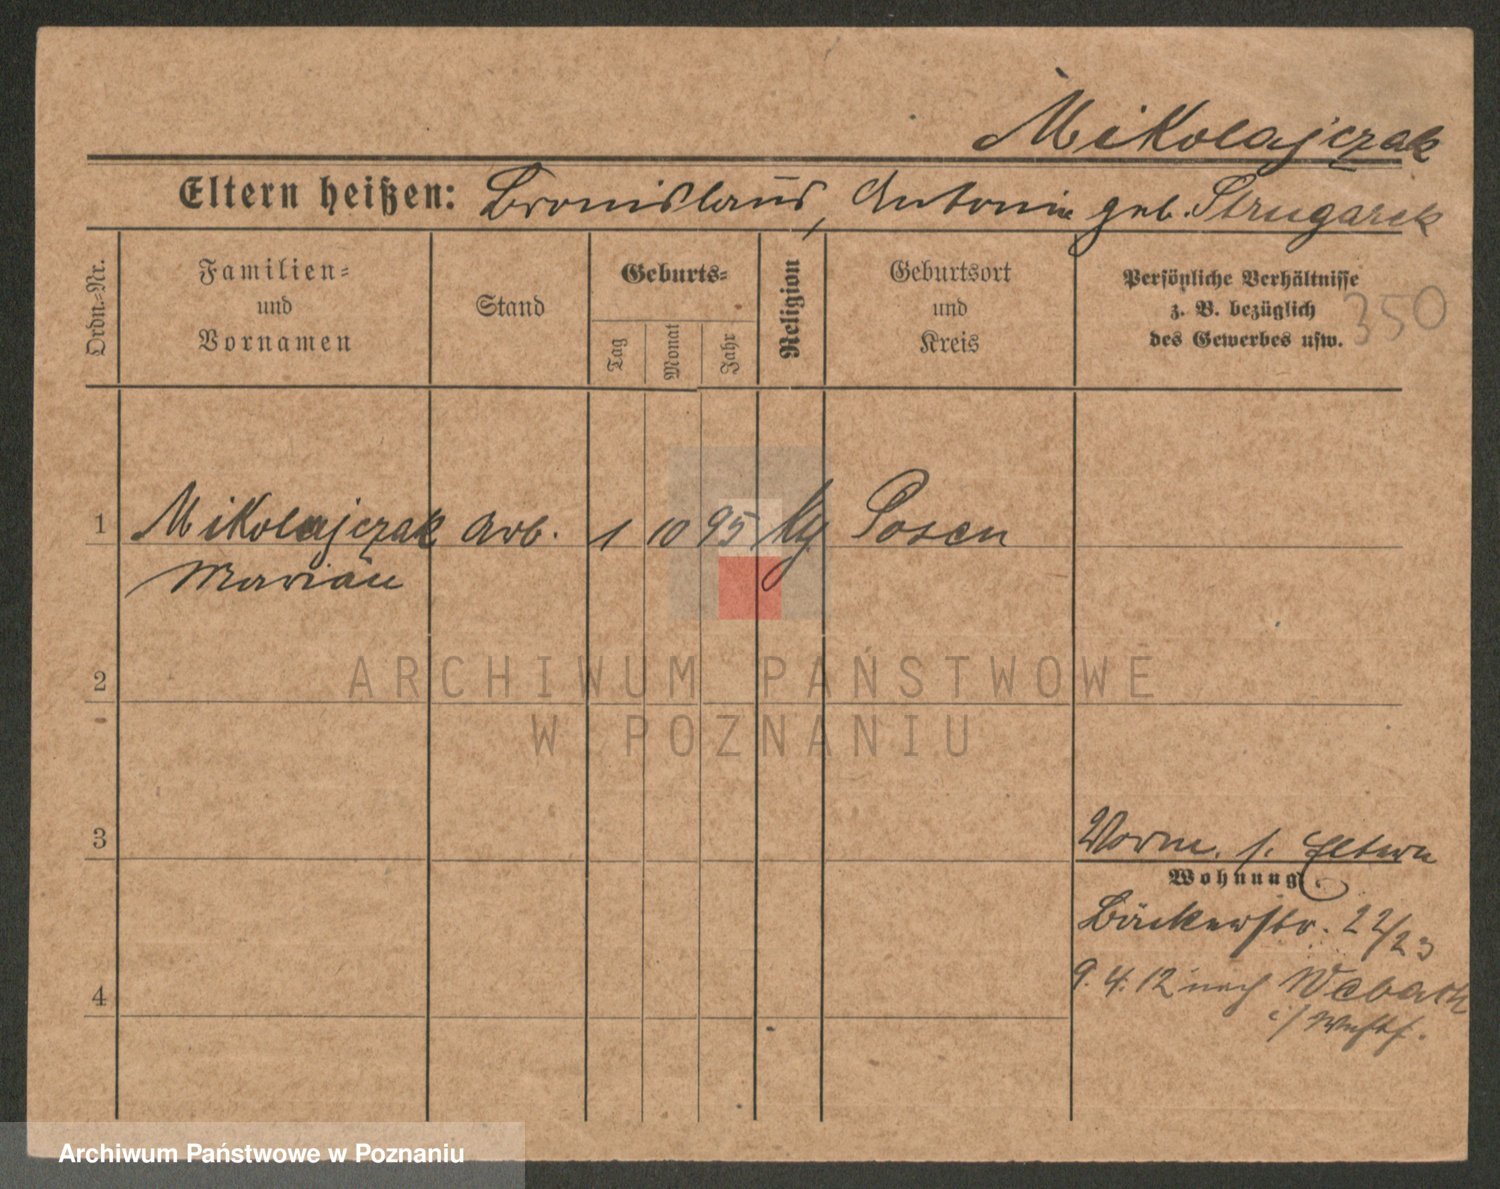 Mikolajczak
Eltern heißen: Bronislaus, Antonie geb. Strugarek
Ordn.-Nr.
Familien-
und
Vornamen
Stand
Geburts-
Tag
Monat
Jahr
Religion
Geburtsort
und
Kreis
Persönliche Verhältnisse
z. B. bezüglich
des Gewerbes usw.
350
1 Mikolajczak Arb. 1 10 95 Posen
Marian
2
ARCHIWUM PAŃSTWOWE
W POZNANIU
3
Vorm. s. Eltern
Wohnung
Bäckerstr. 22/23
4
9. 4. 12 nach
i/ Westf.
Archiwum Państwowe w Poznaniu